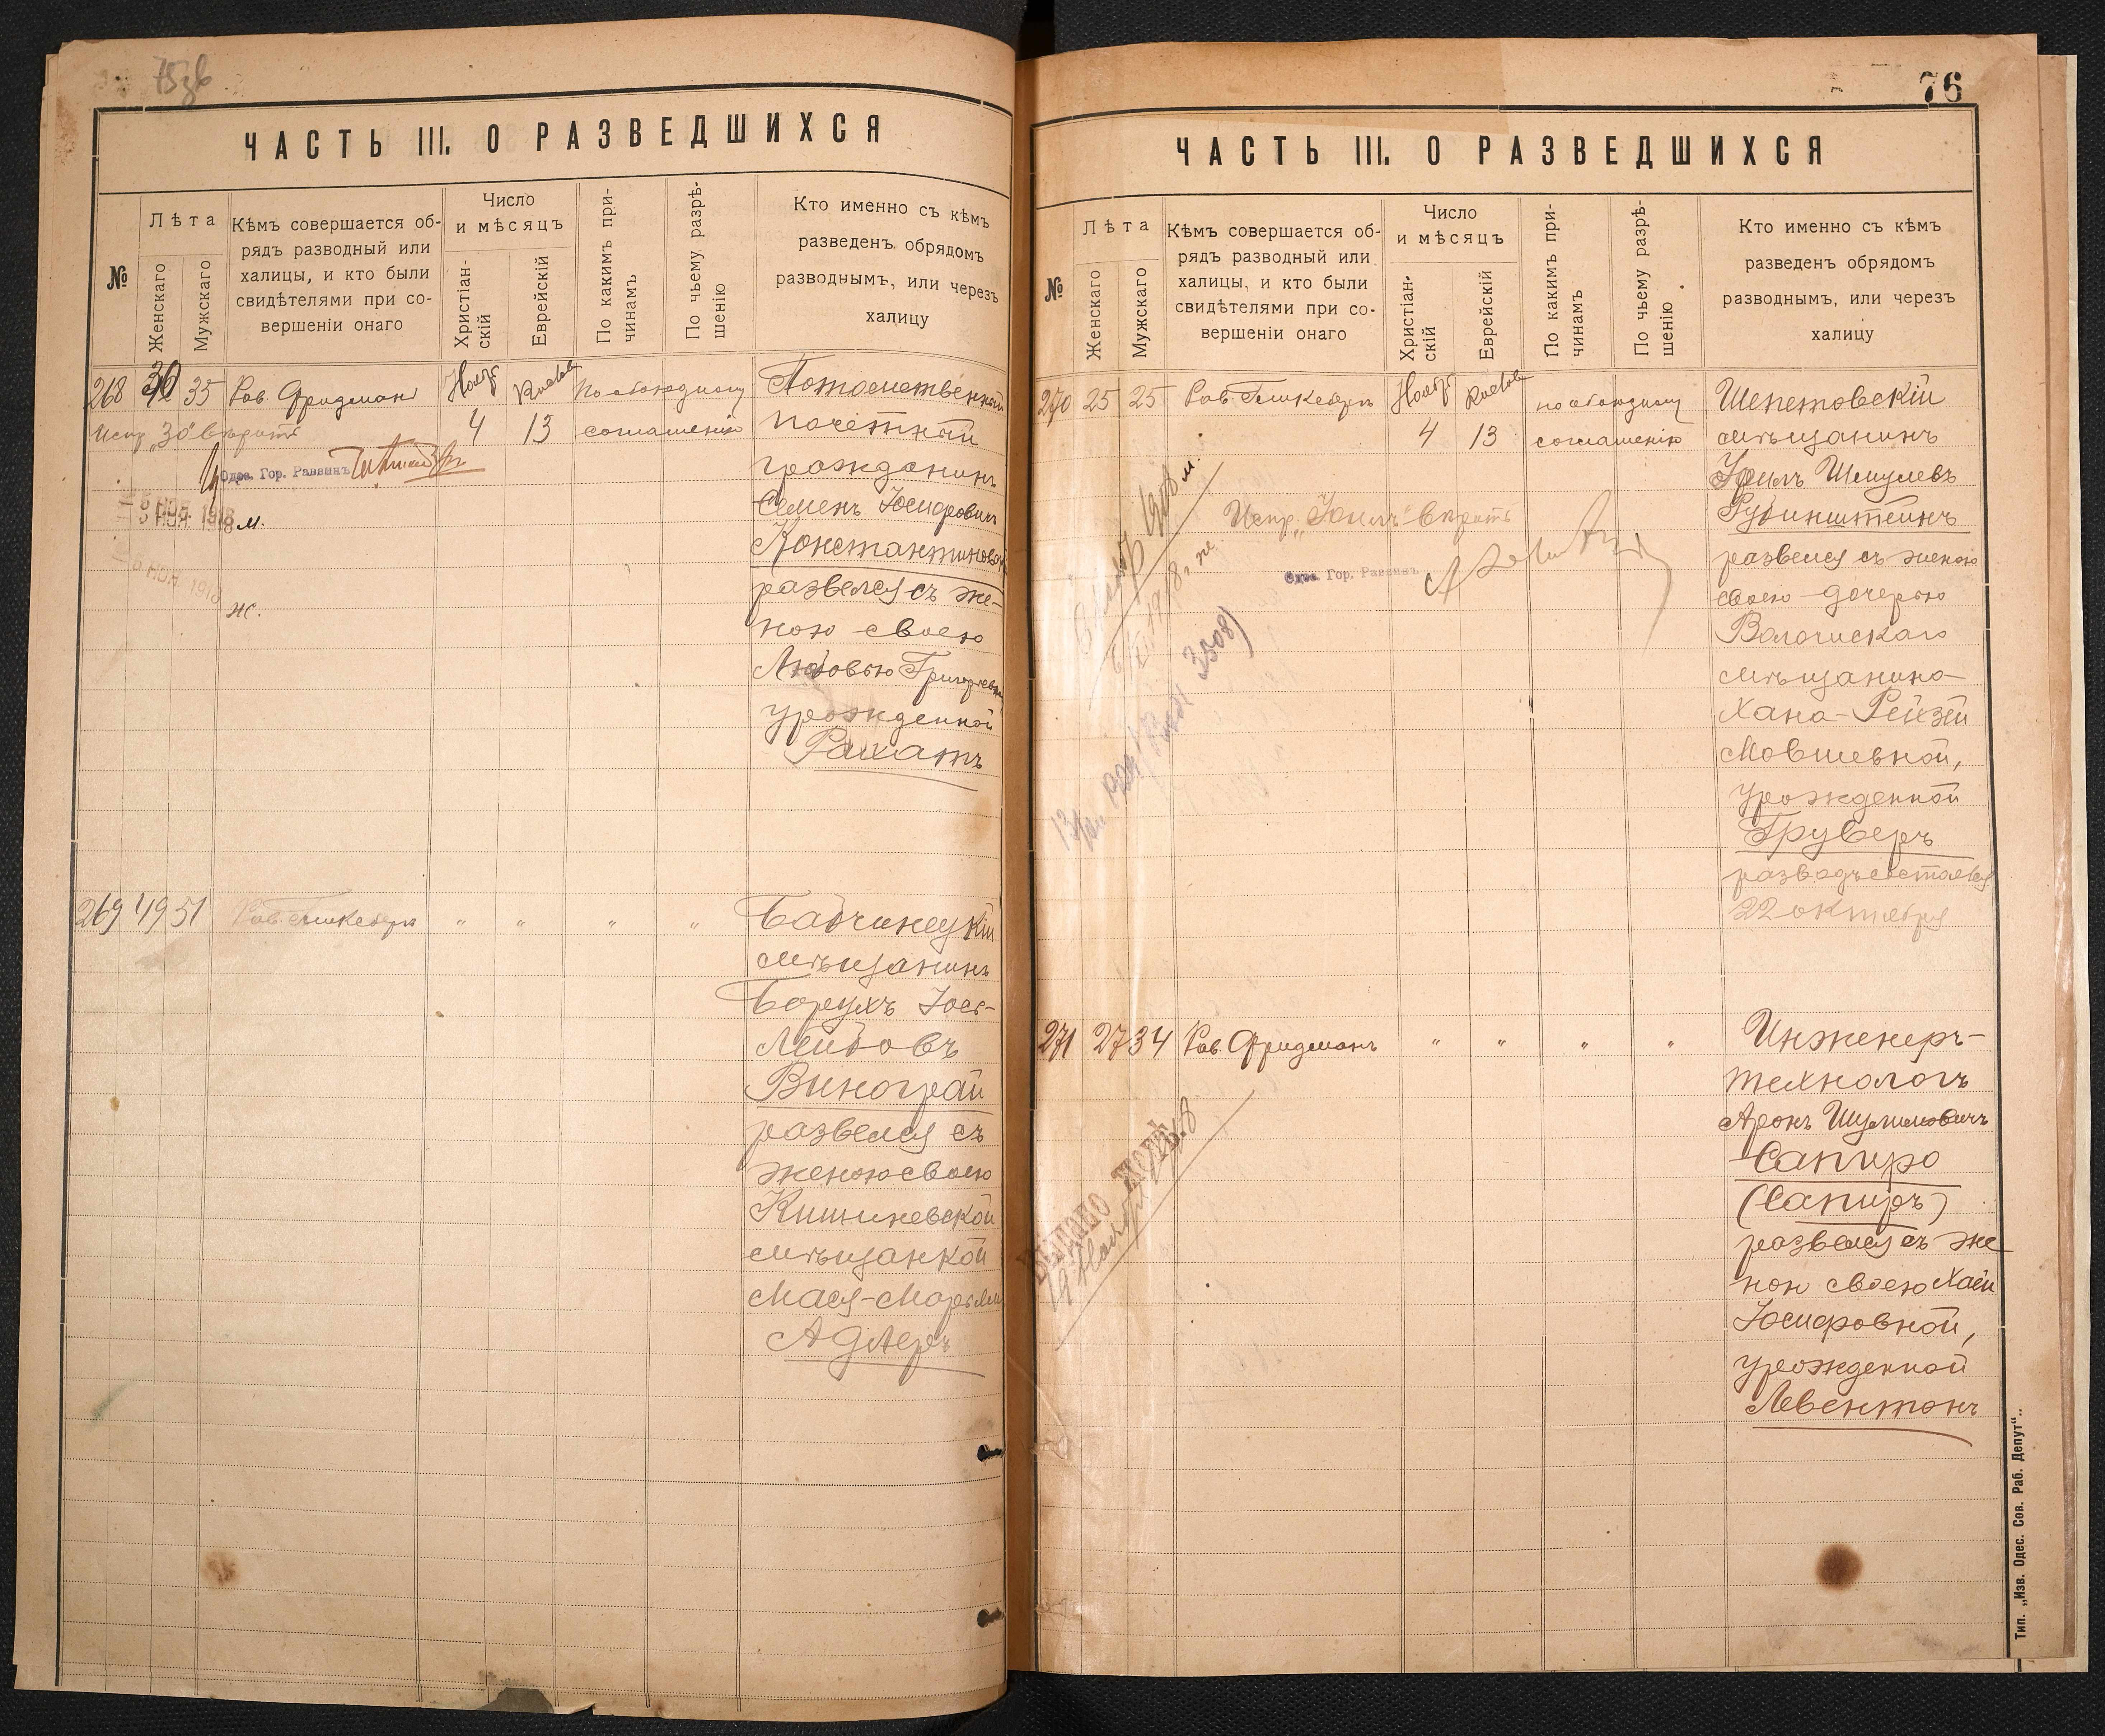 75
ЧАСТЬ III. О РАЗВЕДШИХСЯ
№
Лѣта
Женскаго
Мужскаго
Кѣмъ совершается об-
рядъ разводный или
халицы, и кто были
свидѣтелями при со-
вершеніи онаго
Число
и мѣсяцъ
Христіан-
скій
Еврейскій
По какимъ при-
чинамъ
По чьему разрѣ-
шенію
Кто именно съ кѣмъ
разведенъ обрядомъ
разводнымъ, или через
халицу
268 30 35 Рав. Фридманъ
Нояб
4
13
По обоюдному
соглашенію
Потомственный
почетный
гражданинъ
Семенъ Іосифович
Константиновс
развелся съ же-
ною своею
Любовью Григорьевн
урожденной
Рахатъ
Испр. „30“ вѣрить
Одес. Гор. Раввинъ
5 НОЯ. 1918 м.
6 НОЯ. 1918
ж.
269 49 51 Рав. Гликсбергъ " " " "
Бабчинецкій
мѣщанинъ
Борухъ Іось-
Лейбовъ
Виноградъ
развелся съ
женою своею
Кишиневской
мѣщанкой
Мася-Марьям
Адлеръ
76
ЧАСТЬ III. О РАЗВЕДШИХСЯ
№
Лѣта
Женскаго
Мужскаго
Кѣмъ совершается об-
рядъ разводный или
халицы, и кто были
свидѣтелями при со-
вершеніи онаго
Число
и мѣсяцъ
Христіан-
скій
Еврейскій
По какимъ при-
чинамъ
По чьему разрѣ-
шенію
Кто именно съ кѣмъ
разведенъ обрядомъ
разводнымъ, или черезъ
халицу
270 25 25 Рав. Гликсбергъ
Нояб
4
13
по обоюдному
соглашенію
Шепетовскій
мѣщанинъ
Іоилъ Шмулевъ
Рубинштейнъ
развелся съ женою
своею дочерью
Волочискаго
мѣщанина
Хана-Рейзей
Мовшевной,
урожденной
Груберъ
разводъ состоялся
22 октября
Испр. „Іоилъ“ вѣрить
Одес. Гор. Раввинъ
271 27 34 Рав. Фридманъ " " " "
Инженеръ-
технологъ
Аронъ Шулимовичъ
Сапиро
(Сапиръ)
развелся съ же
ною своею Хаей
Іосифовной,
урожденной
Левентонъ
Тип. „Изв. Одес. Сов. Раб. Депут“..